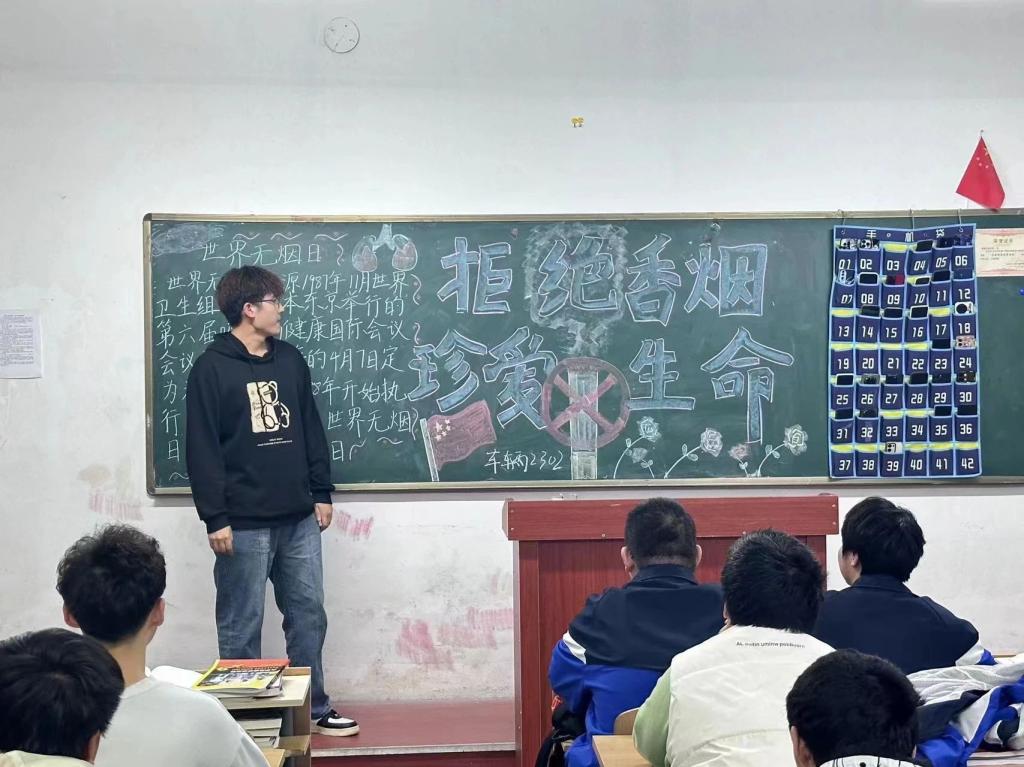 世界无烟日
世界无 源1987年11月世界
卫生组 本东京举行的
第六届 健康国际会议
会议 的4月7日定
为 8年开始执
行 世界无烟
日 日
拒绝香烟
珍爱生命
车车辆2302
手机袋
01 02 03 04 05 06
07 08 09 10 11 12
13 14 15 16 17 18
19 20 21 22 23 24
25 26 27 28 29 30
31 32 33 34 35 36
37 38 39 40 41 42